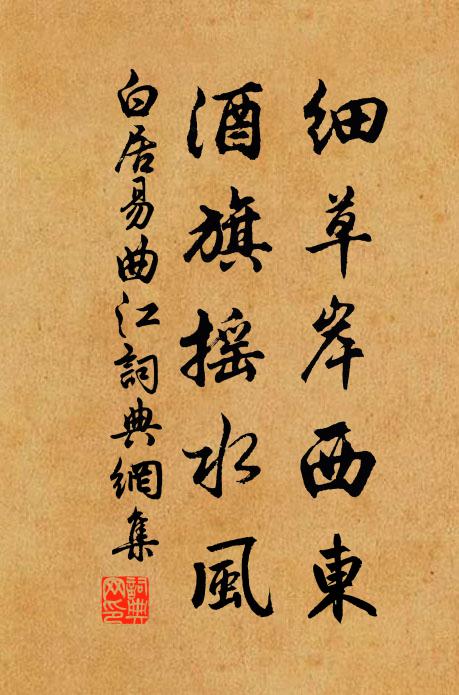 細草岸西東
酒旗摇水風
白居易曲江詞典網集
詞典
网印